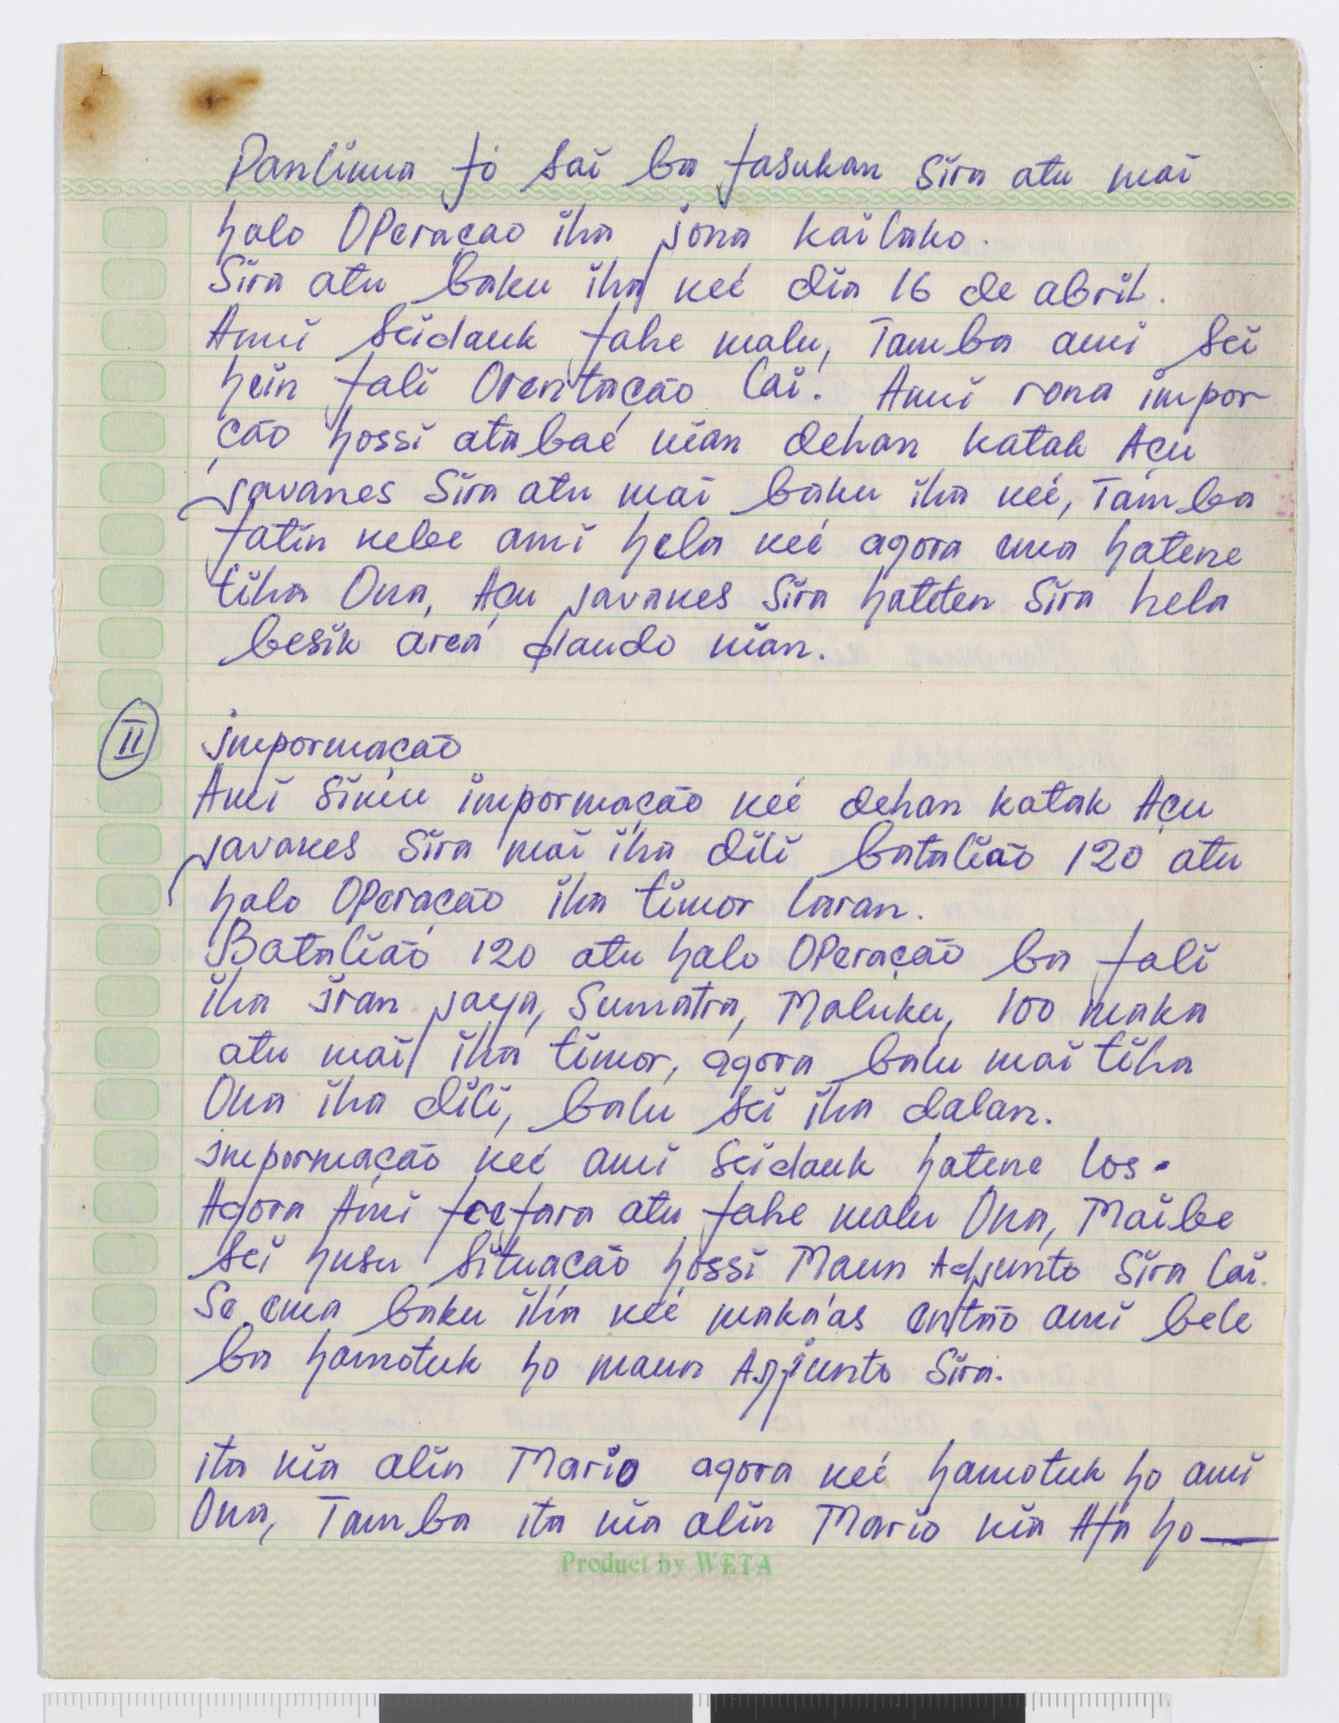 Panlima fó sai ba fasukan Sira atu mai
halo Operaçao iha jona kailako.
Sira atu baku iha neé dia 16 de abril.
Ami Seidauk fahe malu, Tamba ami Sei
hein fali Orentação lai. Ami rona impor
ção hossi atabaé nian dehan katak Açu
javanes Sira atu mai baku iha neé, Tamba
fatin nebe ami hela neé agora ema hatene
tiha Ona, Açu javanes Sira hateten Sira hela
besik área Nando nian.
II impormação
Ami Simu impormação neé dehan katak Açu
javanes Sira mai iha dili batalião 120 atu
halo Operação iha timor laran.
Batalião 120 atu halo Operação ba fali
iha iran jaya, Sumatra, Maluku, 100 maka
atu mai iha timor, agora balu mai tiha
Ona iha dili, balu sei iha dalan.
impormação neé ami Seidauk hatene los.
Agora Ami feefara atu fahe malu Ona, Maibe
Sei husu Situação hossi Maun Adjunto Sira lai.
Se ema baku iha neé makaás então ami bele
ba hamotuk ho maun Adjunto Sira.
ita nia alin Mario agora neé hamotuk ho ami
Ona, Tamba ita nia alin Mario nia Afa ho—
Product by WETA